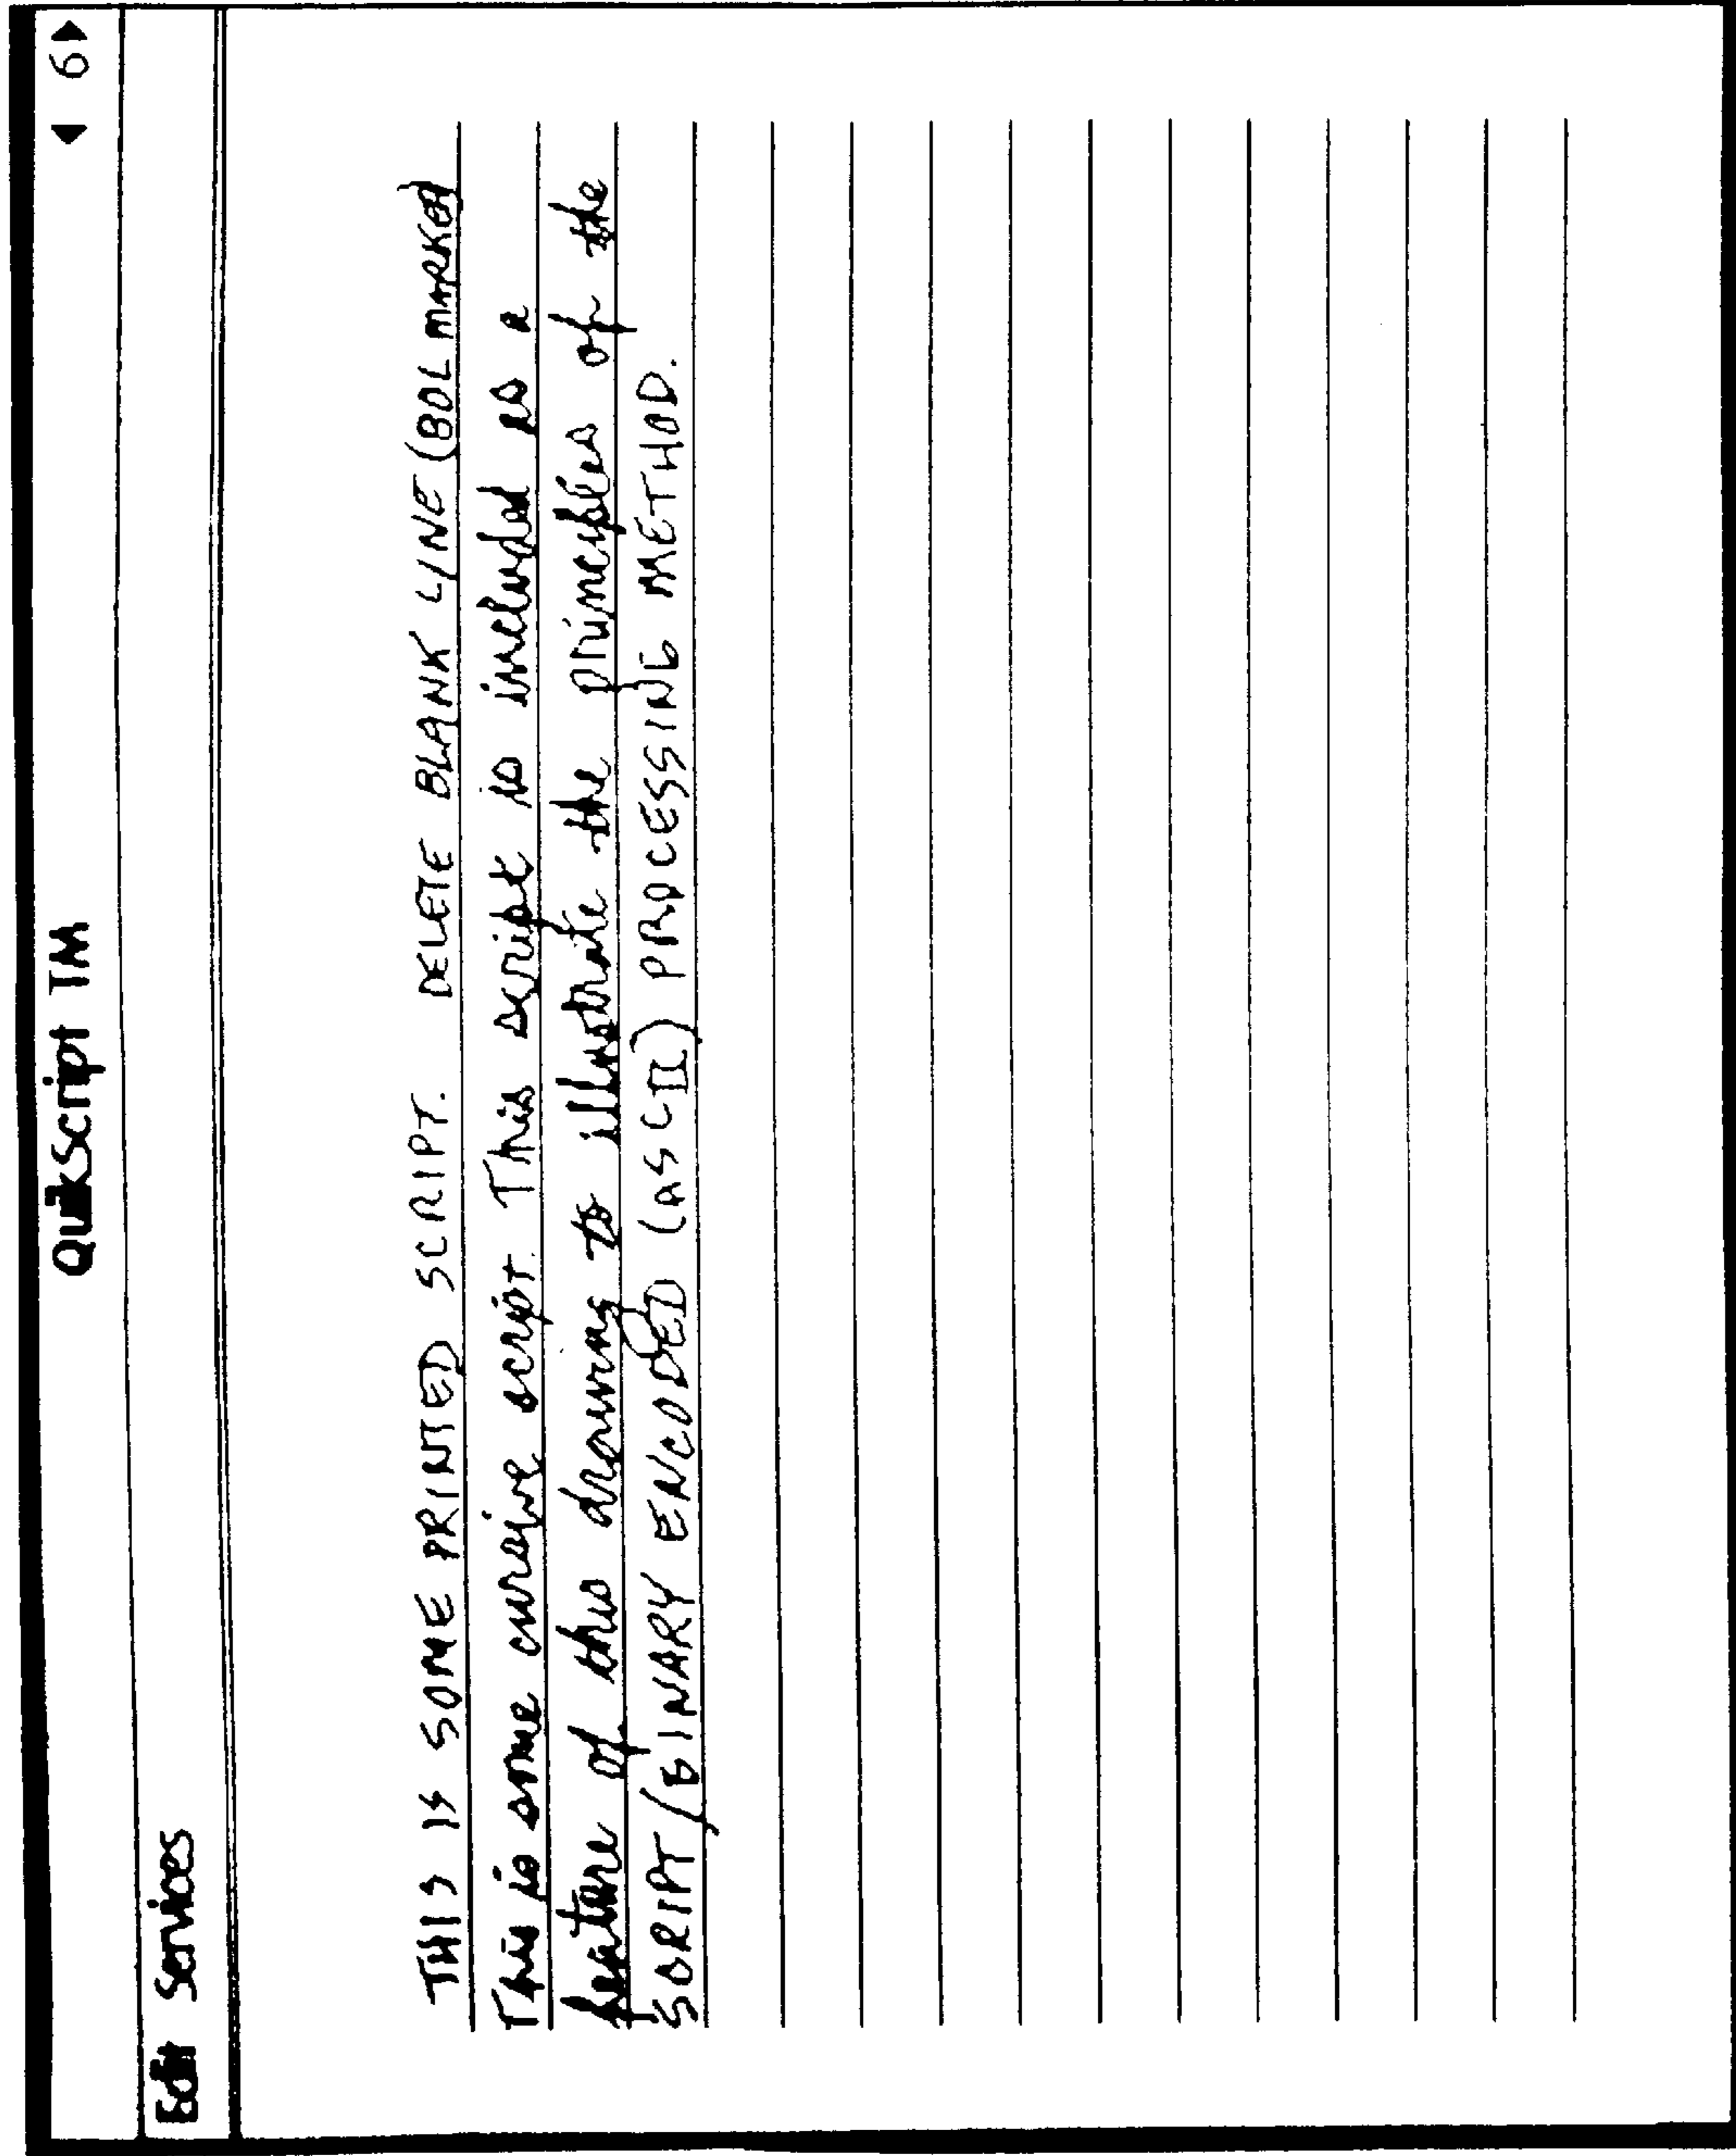 QuikScript TM ◀ 6 ▶
Edit Services
THIS IS SOME PRINTED SCRIPT. DELETE BLANK LINE (BOL MARKED)
This is some cursive script. This script is included as a
feature of this drawing to illustrate the principles of the
SCRIPT/BINARY ENCODED (ASCII) PROCESSING METHOD.